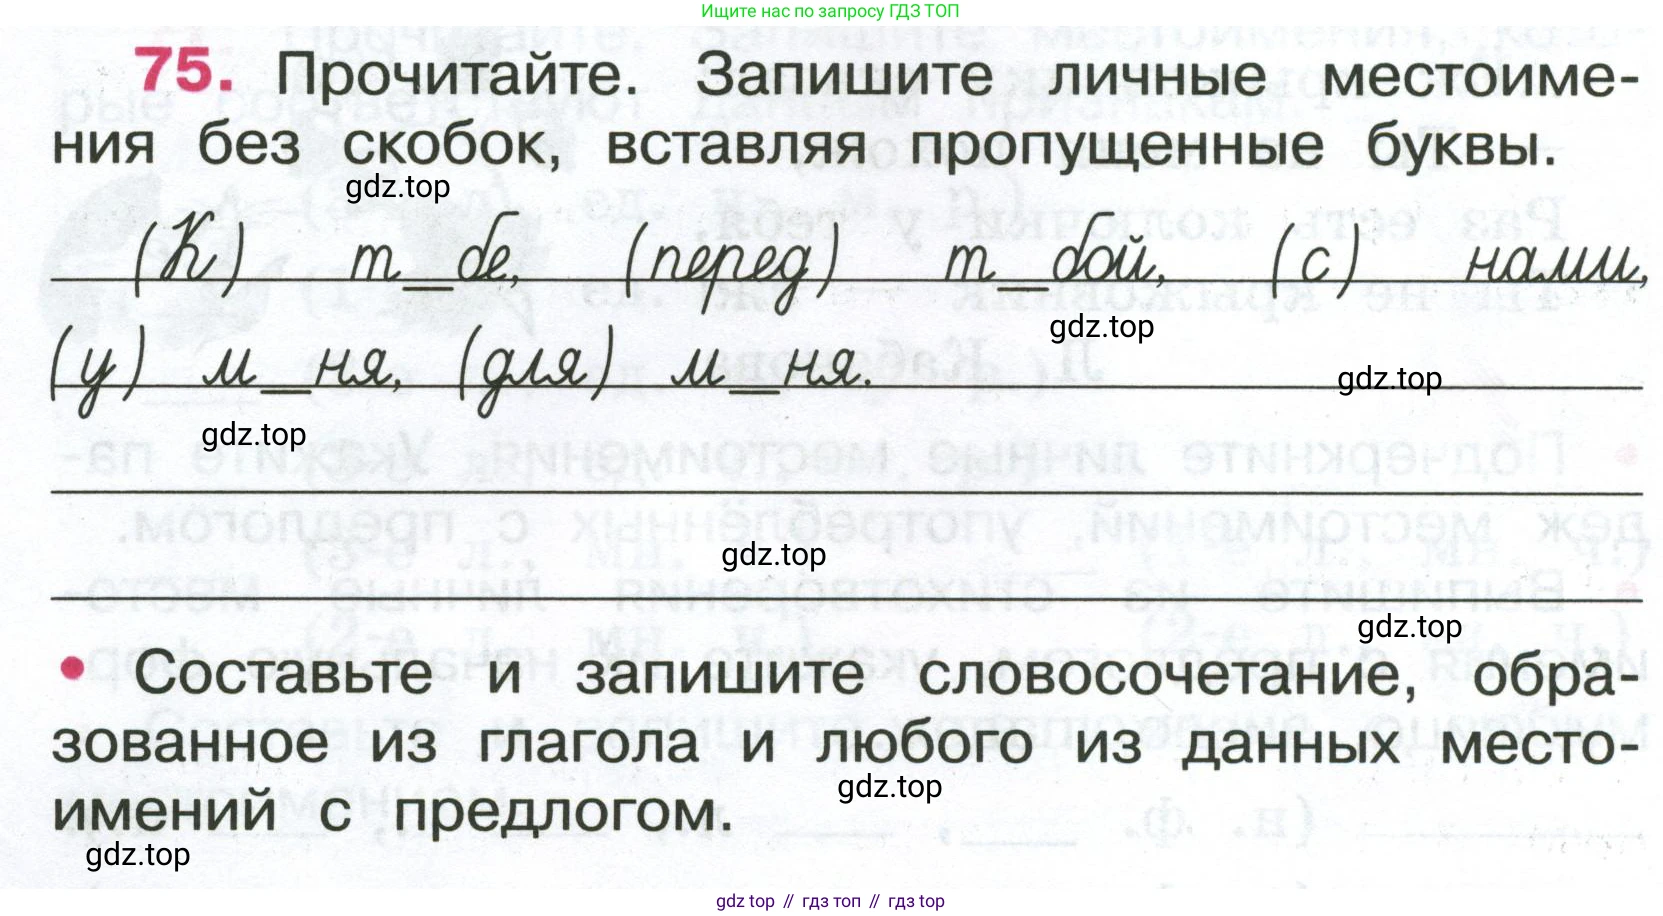 Ищите нас по запросу ГДЗ ТОП
75. Прочитайте. Запишите личные местоиме-
ния без скобок, вставляя пропущенные буквы.
gdz.top
(К) т_бе, (перед) т_бой, (с) нами,
gdz.top
(у) м_ня, (для) м_ня.
gdz.top
gdz.top
gdz.top
gdz.top
• Составьте и запишите словосочетание, обра-
зованное из глагола и любого из данных место-
gdz.top
имений с предлогом.
gdz.top
gdz top // гдз топ // гдз top